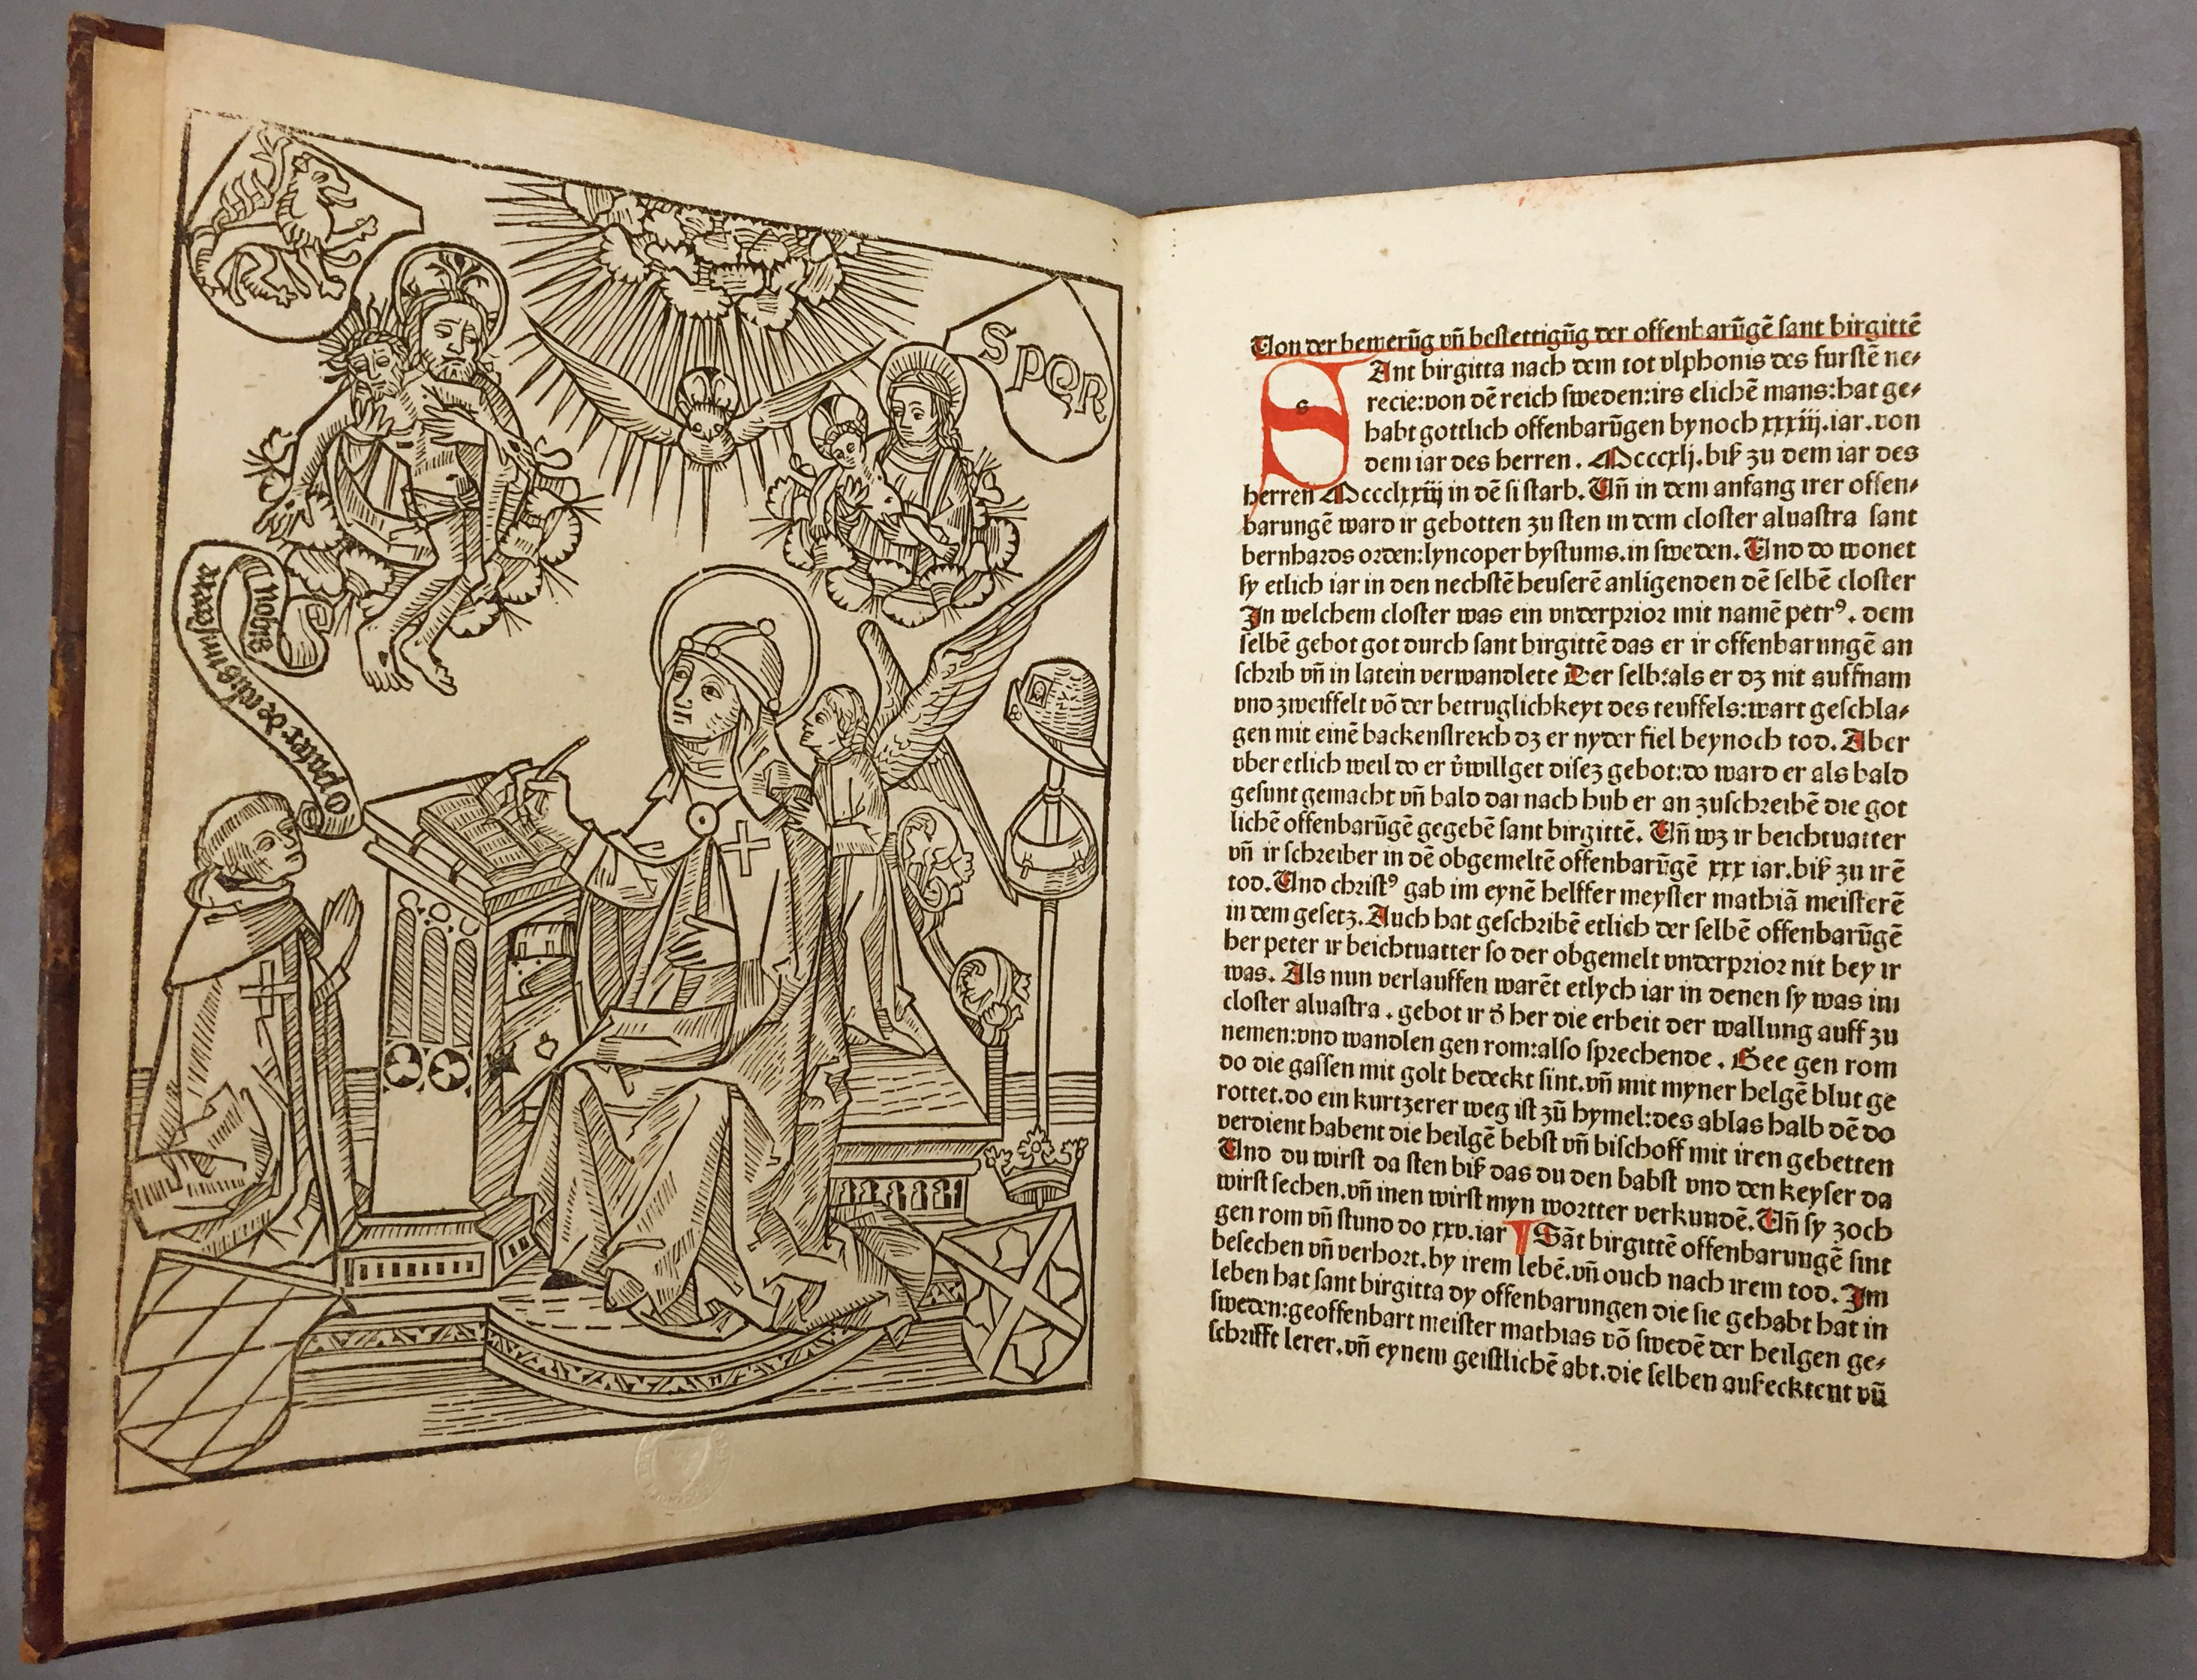 SPQR
O pater de celis miserere
nobis
Von der bewerūg vñ bestettigūg der offenbarūgē sant birgittē
SAnt birgitta nach dem tot vlphonis des furstē ne-
recie:von dē reich sweden:irs elichē mans:hat ge-
habt gottlich offenbarūgen bynoch xxxiij.iar.von
dem iar des herren. Mcccxlj.biß zu dem iar des
herren Mccclxxiij in dē si starb. Vñ in dem anfang irer offen-
barungē ward ir gebotten zu sten in dem closter aluastra sant
bernhards orden:lyncoper bystums.in sweden. Vnd do wonet
sy etlich iar in den nechstē heuserē anligenden dē selbē closter
In welchem closter was ein vnderprior mit namē petrꝰ. dem
selbē gebot got durch sant birgittē das er ir offenbarungē an
schrib vñ in latein verwandlete Der selb:als er dz nit auffnam
vnd zweiffelt vō der betruglichkeyt des teuffels:wart geschla-
gen mit einē backenstreich dz er nyder fiel beynoch tod. Aber
vber etlich weil do er v̄willget disez gebot:do ward er als bald
gesunt gemacht vñ bald dar nach hub er an zuschreibē die got
lichē offenbarūgē gegebē sant birgittē. Vñ wz ir beichtuatter
vñ ir schreiber in dē obgemeltē offenbarūgē xxx iar.biß zu irē
tod. Vnd christꝰ gab im eynē helffer meyster mathiā meisterē
in dem gesetz. Auch hat geschribē etlich der selbē offenbarūgē
her peter ir beichtuatter so der obgemelt vnderprior nit bey ir
was. Als nun verlauffen warēt etlych iar in denen sy was im
closter aluastra. gebot ir d̄ her die erbeit der wallung auff zu
nemen:vnd wandlen gen rom:also sprechende. Gee gen rom
do die gassen mit golt bedeckt sint.vñ mit myner helgē blut ge
rottet.do ein kurtzerer weg ist zū hymel:des ablas halb dē do
verdient habent die heilgē bebst vñ bischoff mit iren gebetten
Vnd du wirst da sten biß das du den babst vnd den keyser da
wirst sechen.vñ inen wirst myn wortter verkundē. Vñ sy zoch
gen rom vñ stund do xxv.iar ¶ Sāt birgittē offenbarungē sint
besechen vñ verhort.by irem lebē.vñ ouch nach irem tod. Im
leben hat sant birgitta dy offenbarungen die sie gehabt hat in
sweden:geoffenbart meister mathias vō swedē der heilgen ge-
schrifft lerer.vñ eynem geistlichē abt.die selben aufecktent vñ